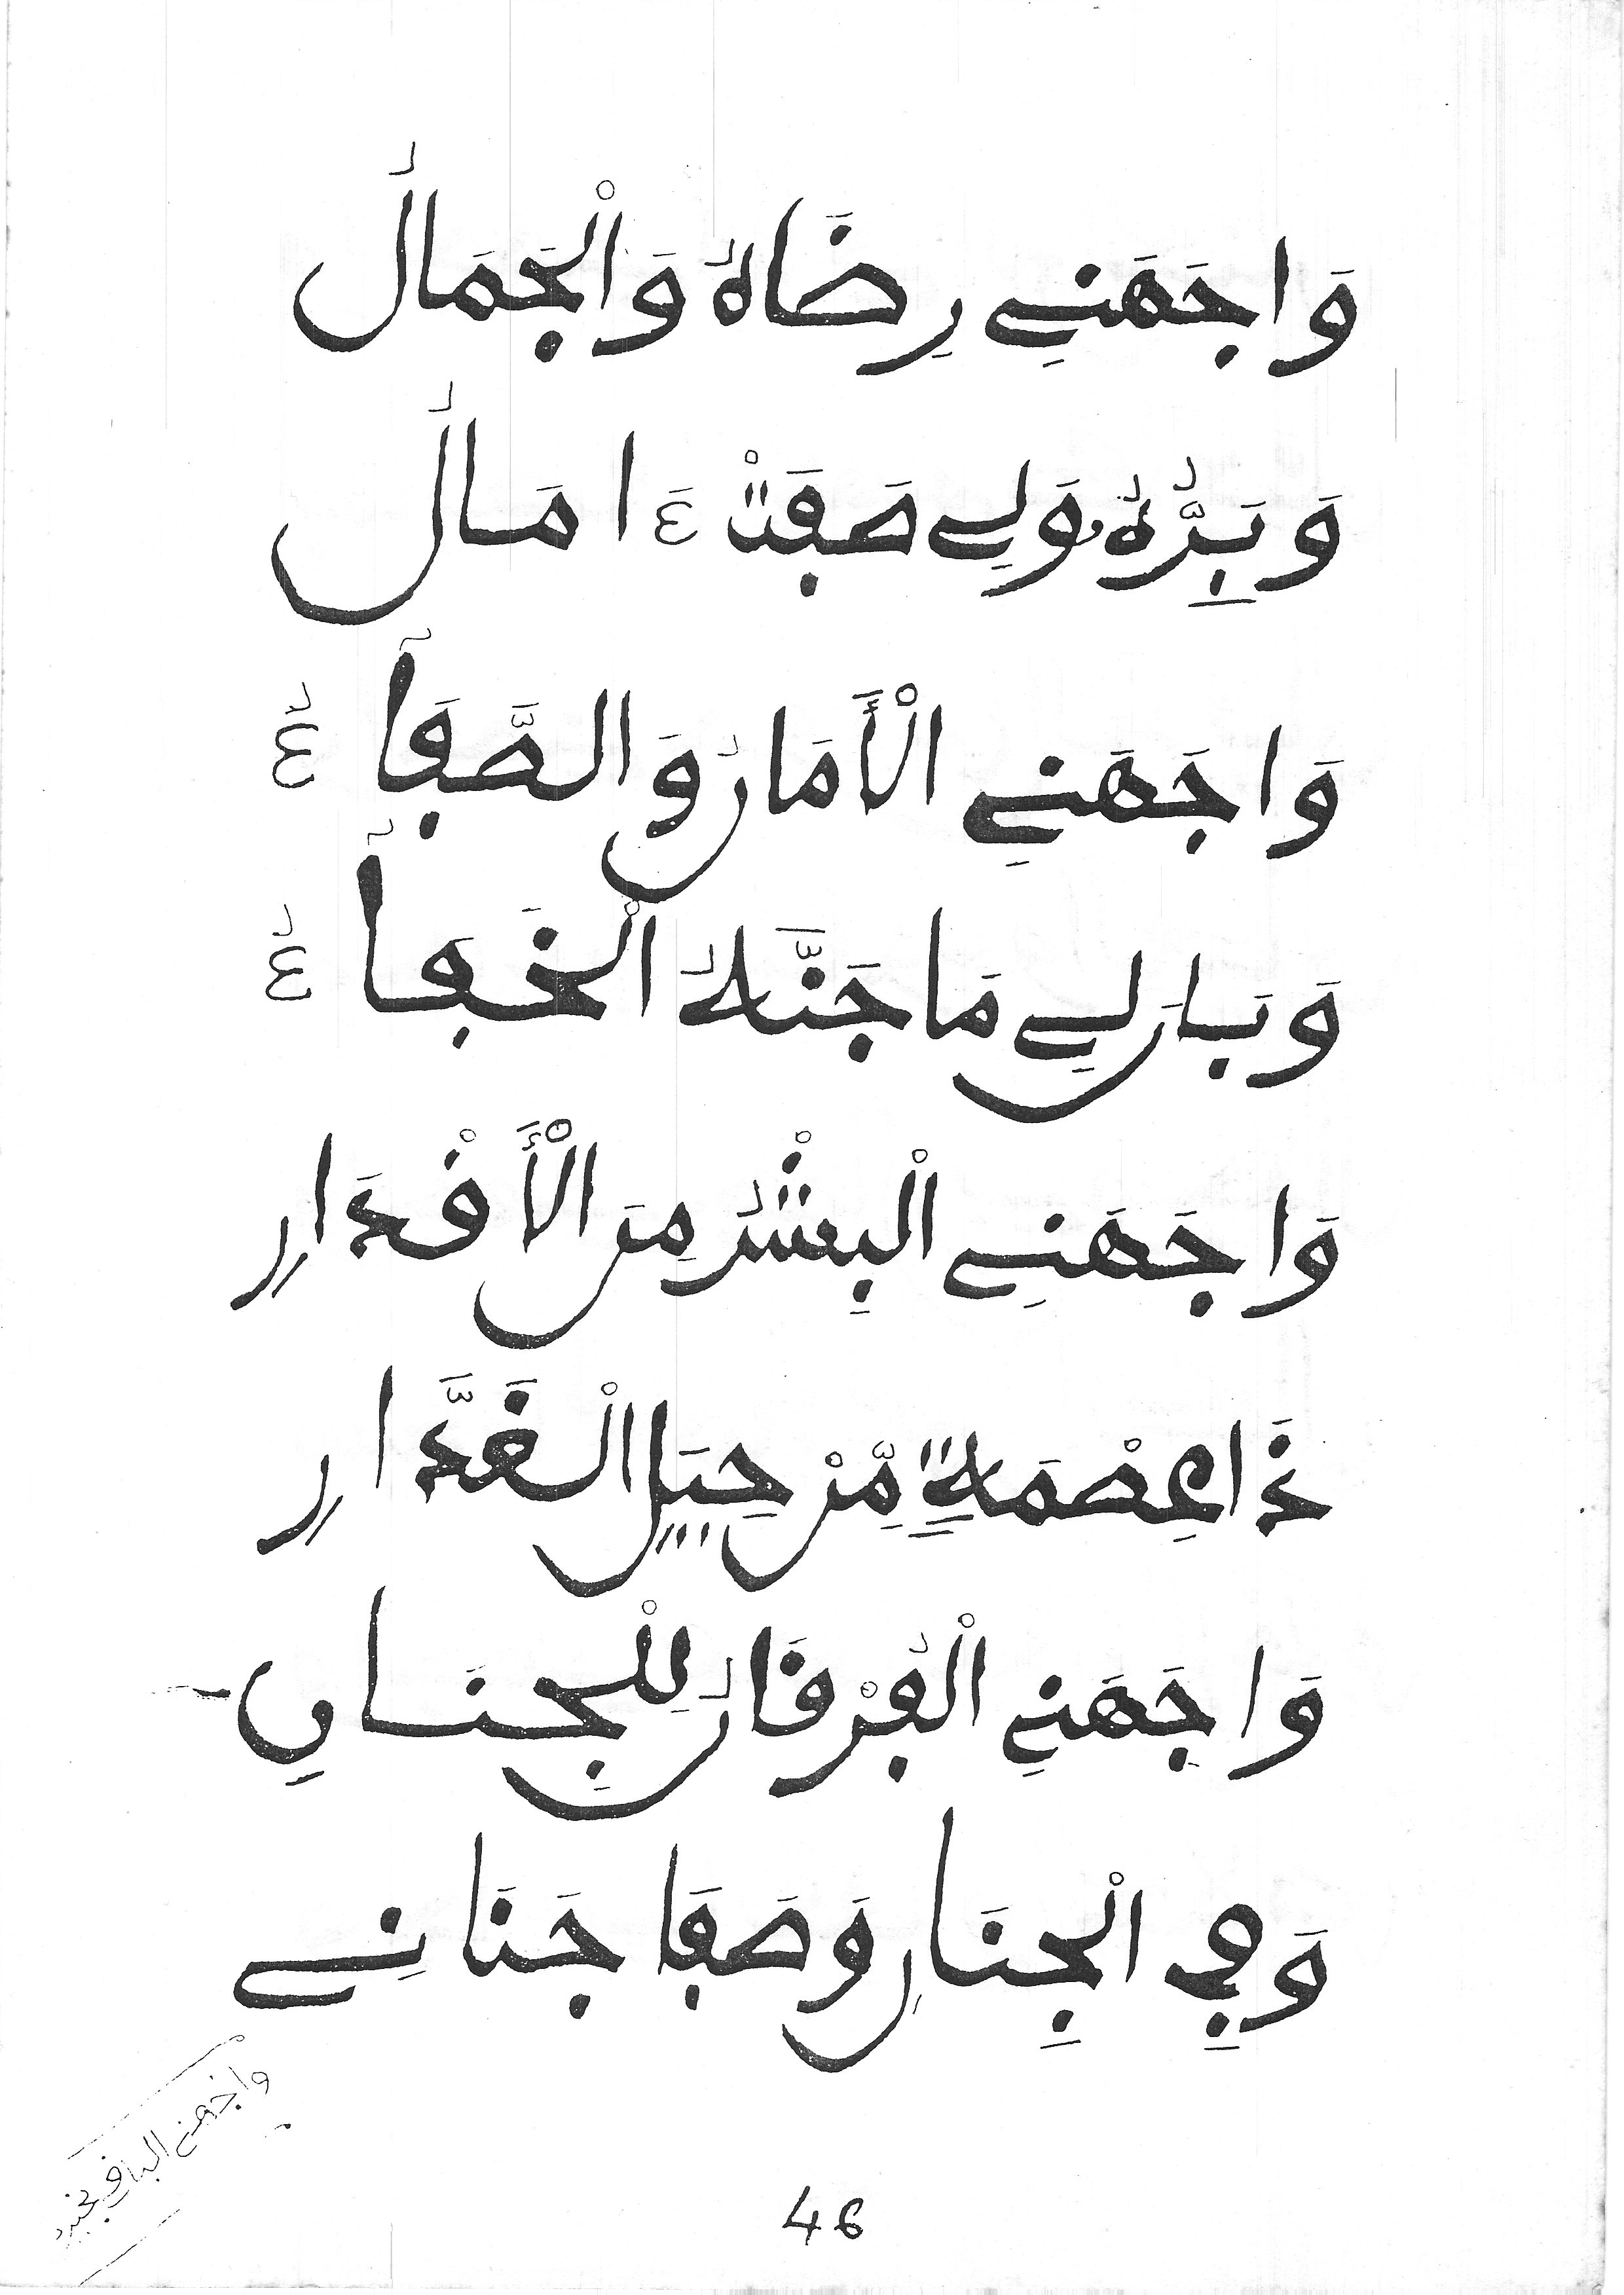 وَاجَهَنِي رِضَاهُ وَالْجَمَالُ
وَبِرُّهُ وَلِي صَفَتْ ءَامَالُ
وَاجَهَنِي الْأَمَانُ وَالصَّفَآءُ
وَبَانَ لِي مَا جَنَّهُ الْخَفَآءُ
وَاجَهَنِي الْبِشْرُ مِنَ الْأَقْدَارِ
ذَا عِصْمَةٍ مِّنْ حِيَلِ الْغَدَّارِ
وَاجَهَنِي الْفُرْقَانُ لِلْجِنَانِ
وَفِي الْجِنَانِ وَصَفَا جَنَانِي
واجهني الباقي
46